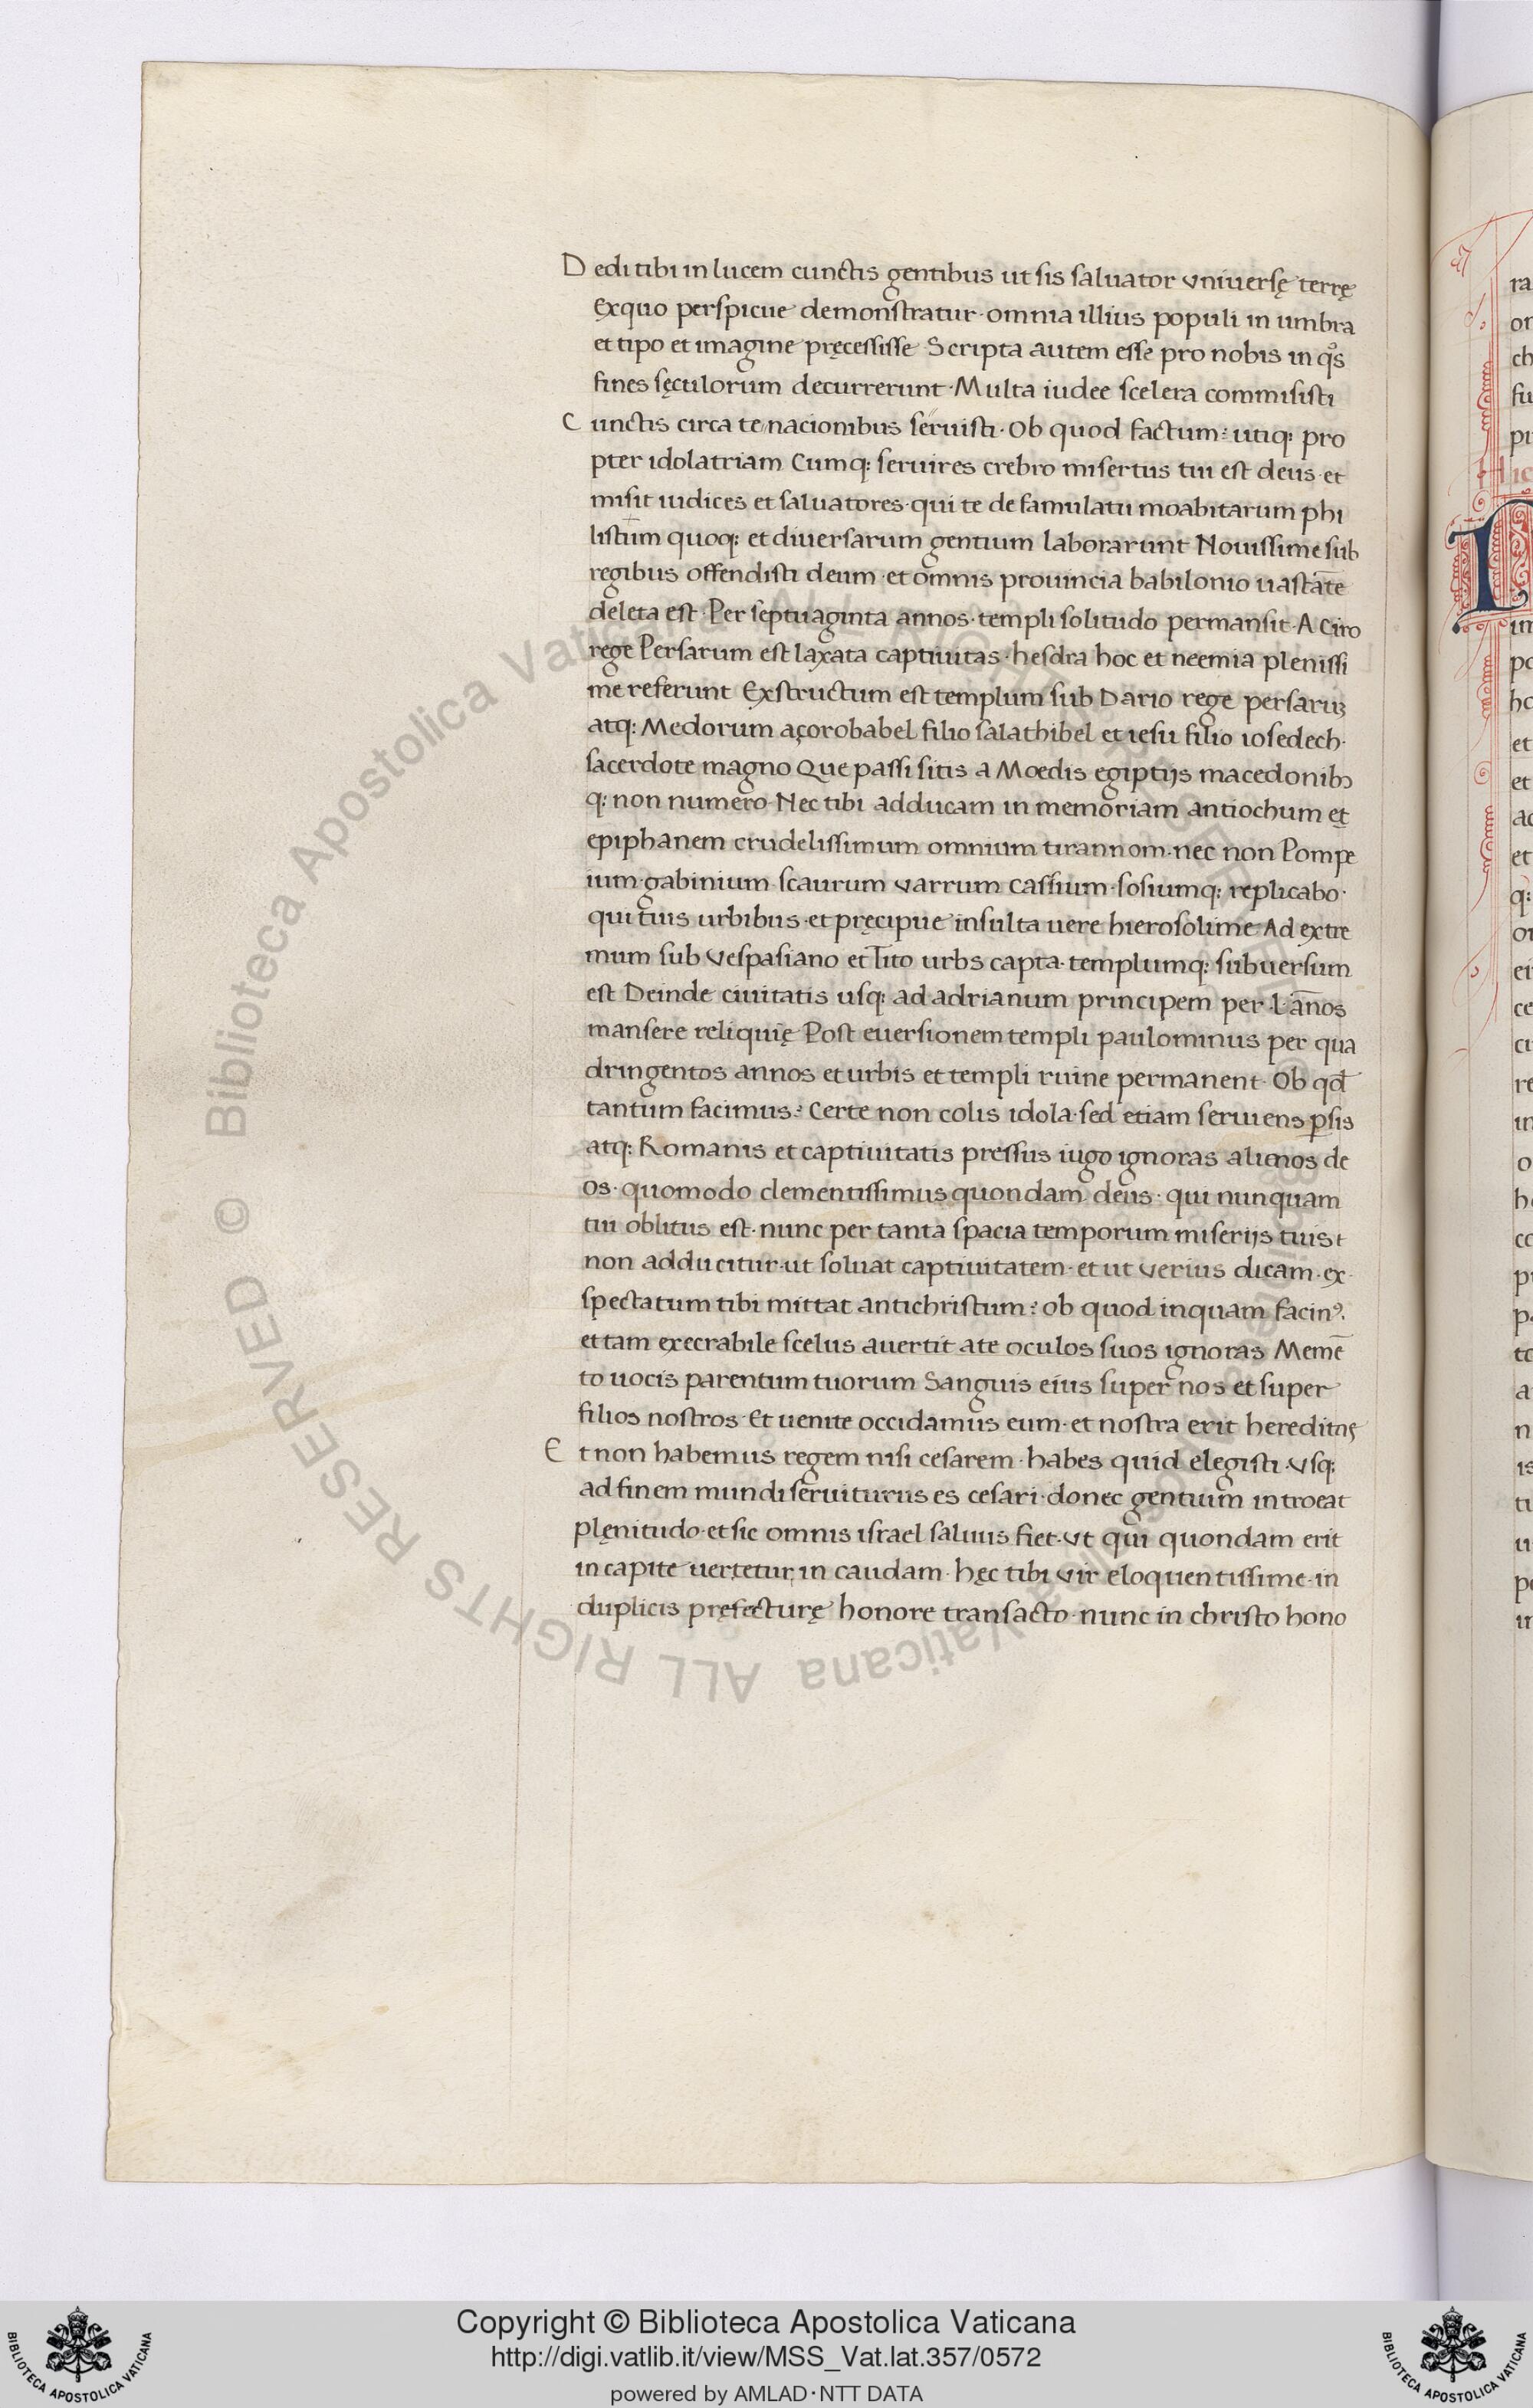 Dedi tibi in lucem cunctis gentibus ut sis saluator vniuersę terrę
Exquo perspicue demonstratur · omnia illius populi in umbra
et tipo et imagine pręcessisse Scripta autem esse pro nobis in qͦs
fines sęculorum decurrerunt · Multa iudee scelera commisisti
Cunctis circa te nacionibus seruisti · Ob quod factum? utiq: pro
pter idolatriam Cumq: seruires crebro misertus tui est deus · et
misit iudices et saluatores · qui te de famulatu moabitarum phi
listum quoq: et diuersarum gentium laborarunt Nouissime sub
regibus offendisti deum · et omnis prouincia babilonio uastāte
deleta est · Per septuaginta annos · templi solitudo permansit · A Ciro
rege Persarum est laxata captiuitas · hesdra hoc et neemia plenissi
me referunt Exstructum est templum sub Dario rege persaruꝫ
atq: Medorum açorobabel filio salathibel et iesu filio iosedech ·
sacerdote magno Que passi sitis a Moedis egiptijs macedonibꝫ
q: non numero Nec tibi adducam in memoriam antiochum et
epiphanem crudelissimum omnium tirannom · nec non Pompe
ium · gabinium · scaurum varrum Cassium · sosiumq: replicabo ·
qui tuis urbibus · et pręcipue insulta uere hierosolime Ad extre
mum sub Vespasiano et Tito urbs capta · templumq: subuersum
est Deinde ciuitatis usq: ad adrianum principem per · L · ānos
mansere reliquię Post euersionem templi paulominus per qua
dringentos annos et urbis et templi ruine permanent · Ob qđ
tantum facimus? Certe non colis idola · sed etiam seruens ꝑsis
atq: Romanis et captiuitatis pressus iugo ignoras alienos de
os · quomodo clementissimus quondam deus · qui nunquam
tui oblitus est · nunc per tanta spacia temporum miserijs tuis
non adducitur · ut soluat captiuitatem · et ut verius dicam · ex
spectatum tibi mittat antichristum? ob quod inquam facinꝰ ·
et tam execrabile scelus auertit ate oculos suos ignoras Memē
to uocis parentum tuorum Sanguis eius super nos et super
filios nostros · Et uenite occidamus eum · et nostra erit hereditas
Et non habemus regem nisi cesarem · habes quid elegisti · Vsq:
ad finem mundi seruiturus es cesari · donec gentium introeat
plęnitudo · et sic omnis israel saluus fiet · Vt qui quondam erit
in capite uertetur in caudam · hęc tibi vir eloquentissime · in
duplicis pręfecturę honore transacto · nunc in christo hono
© Biblioteca Apostolica Vaticana ALL RIGHTS RESERVED
Copyright © Biblioteca Apostolica Vaticana
http://digi.vatlib.it/view/MSS_Vat.lat.357/0572
powered by AMLAD · NTT DATA
BIBLIOTECA APOSTOLICA VATICANA
BIBLIOTECA APOSTOLICA VATICANA